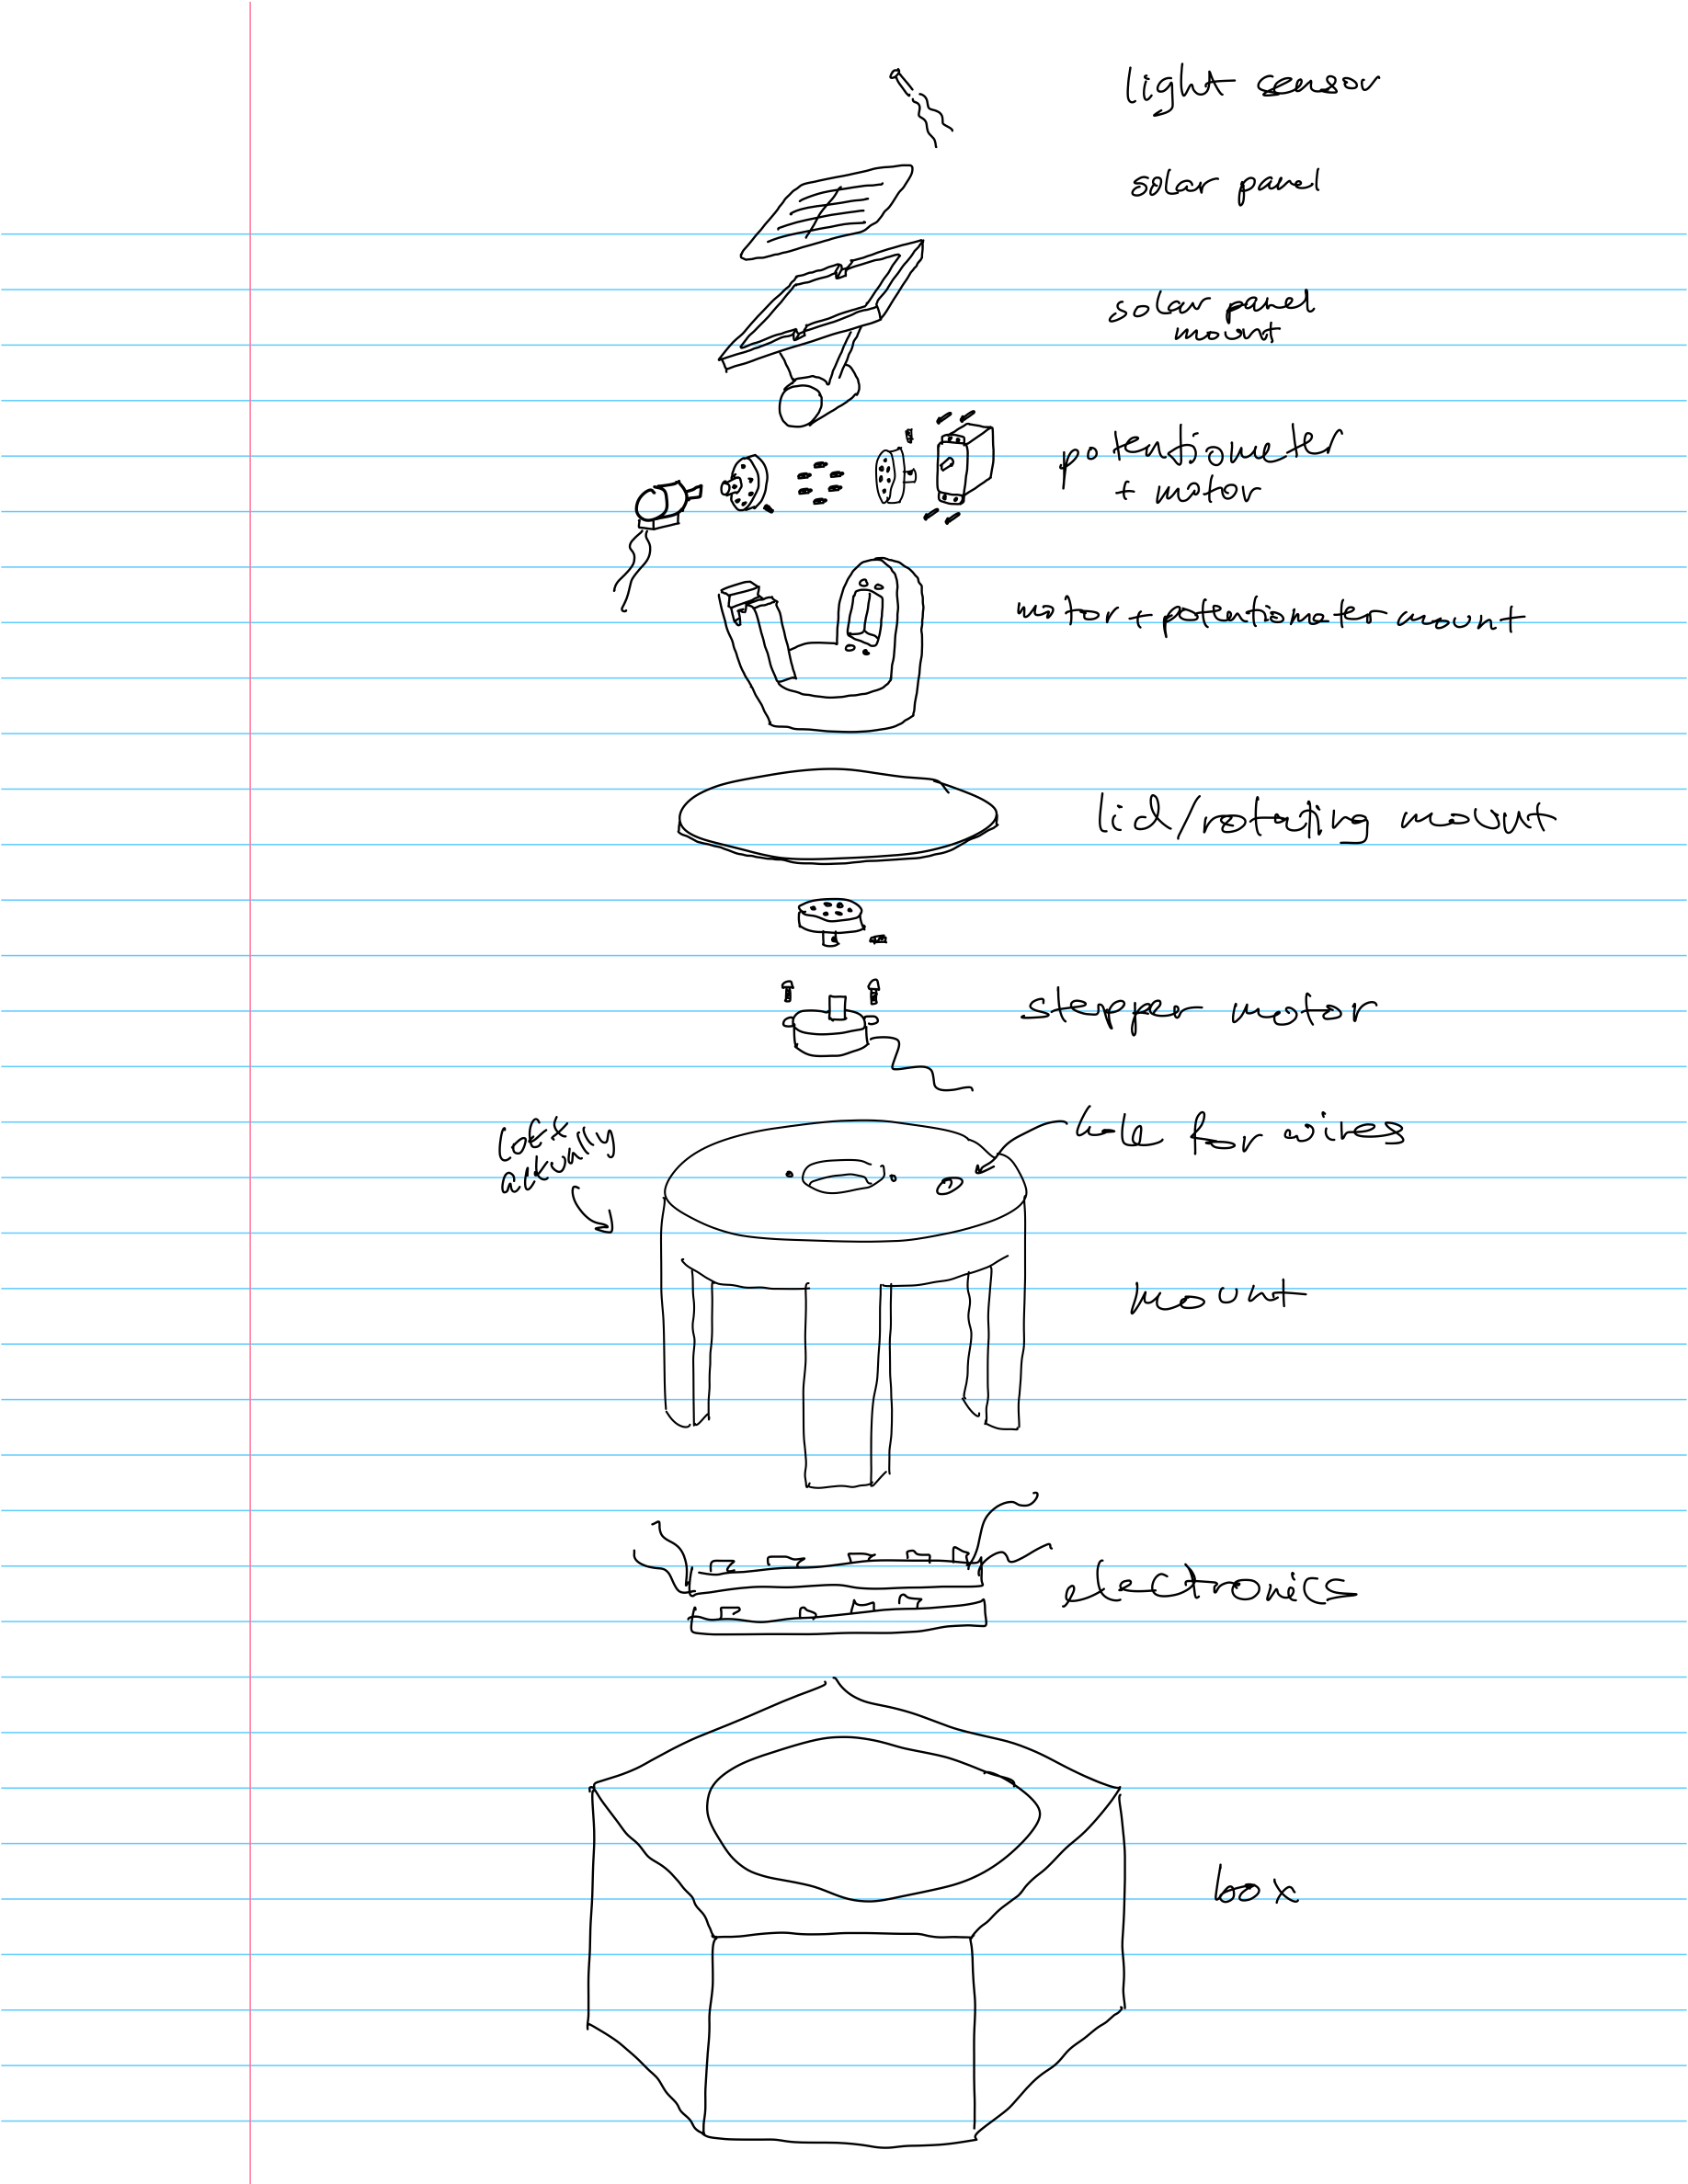 light sensor
solar panel
solar panel
mount
potentiometer
+ motor
motor + potentiometer mount
lid/rotating mount
stepper motor
hole for wires
actually
mount
electronics
box